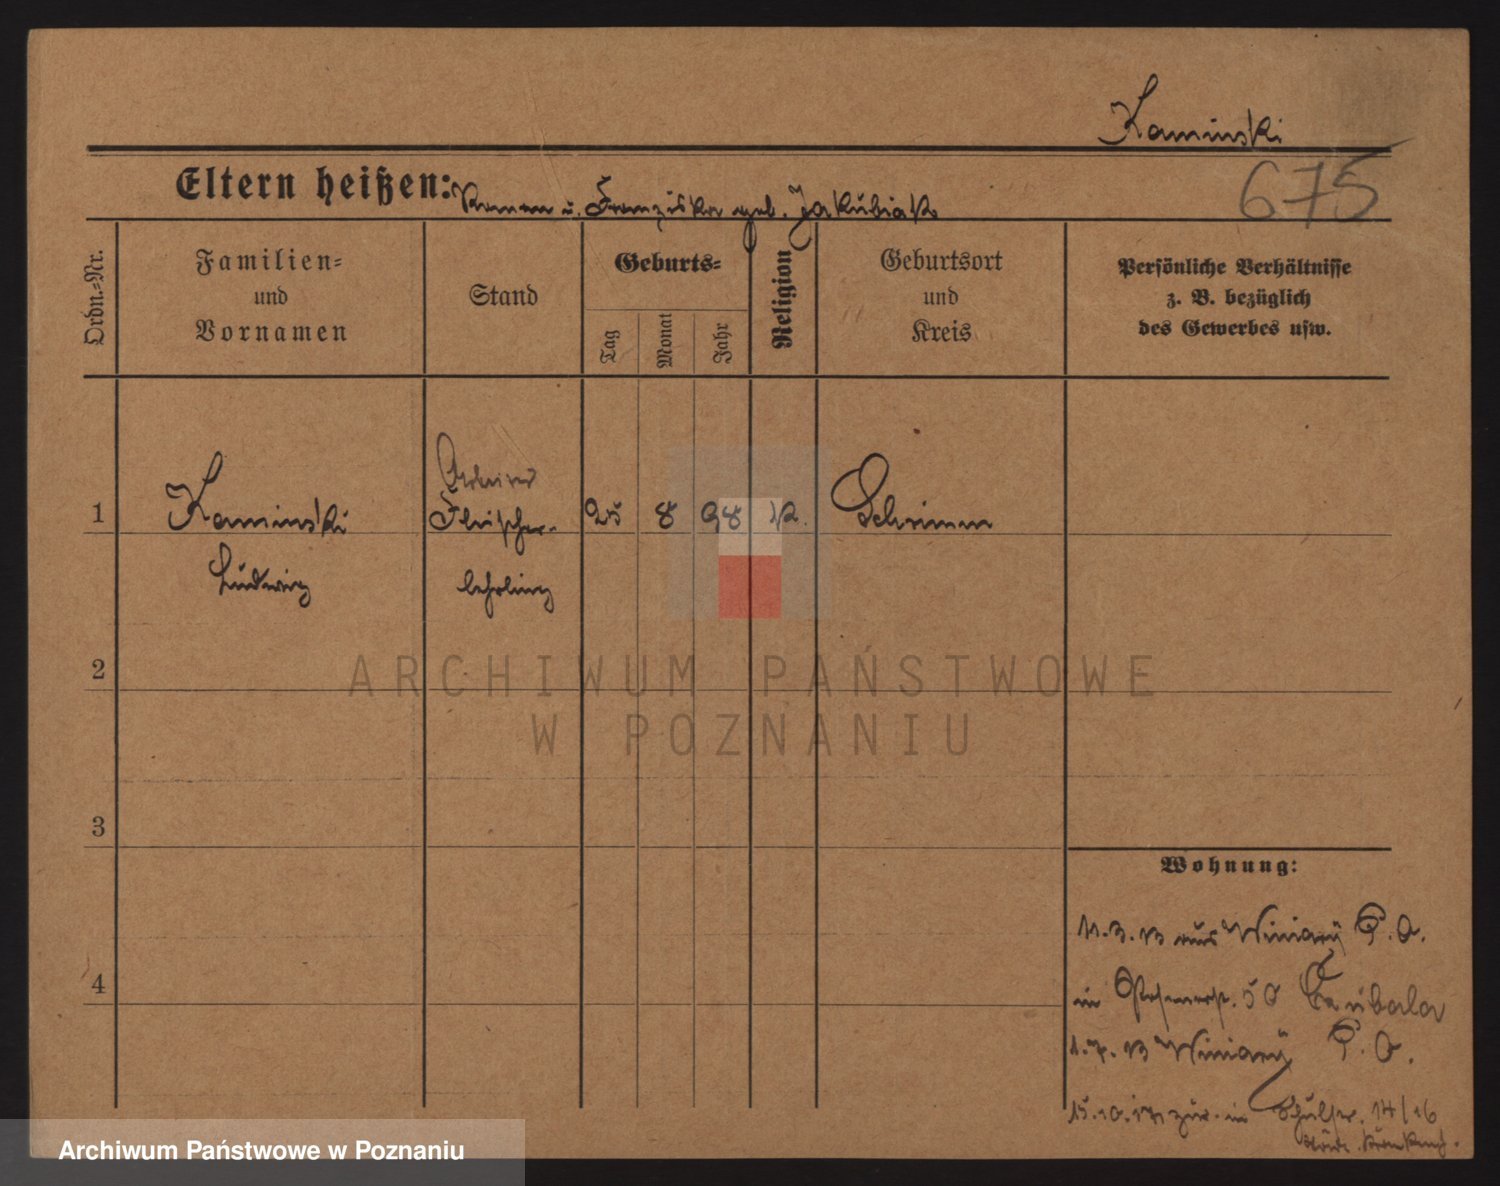 Kaminski
Eltern heißen: Roman u. Franziska geb. Jakubiak
675
Ordn.-Nr.
Familien-
und
Vornamen
Stand
Geburts-
Tag
Monat
Jahr
Religion
Geburtsort
und
Kreis
Persönliche Verhältnisse
z. B. bezüglich
des Gewerbes usw.
Arbeiter
1 Kaminski Fleischer- 25 8 98 K. Schrimm
Ludwig lehrling
2
ARCHIWUM PAŃSTWOWE
W POZNANIU
3
Wohnung:
11.3.13 aus Winiary P. O.
4
in Posenerstr. 50
1.7.13 Winiary P. O.
15.10.17 zur. in Schulstr. 14/16
Städt. Krankenh.
Archiwum Państwowe w Poznaniu